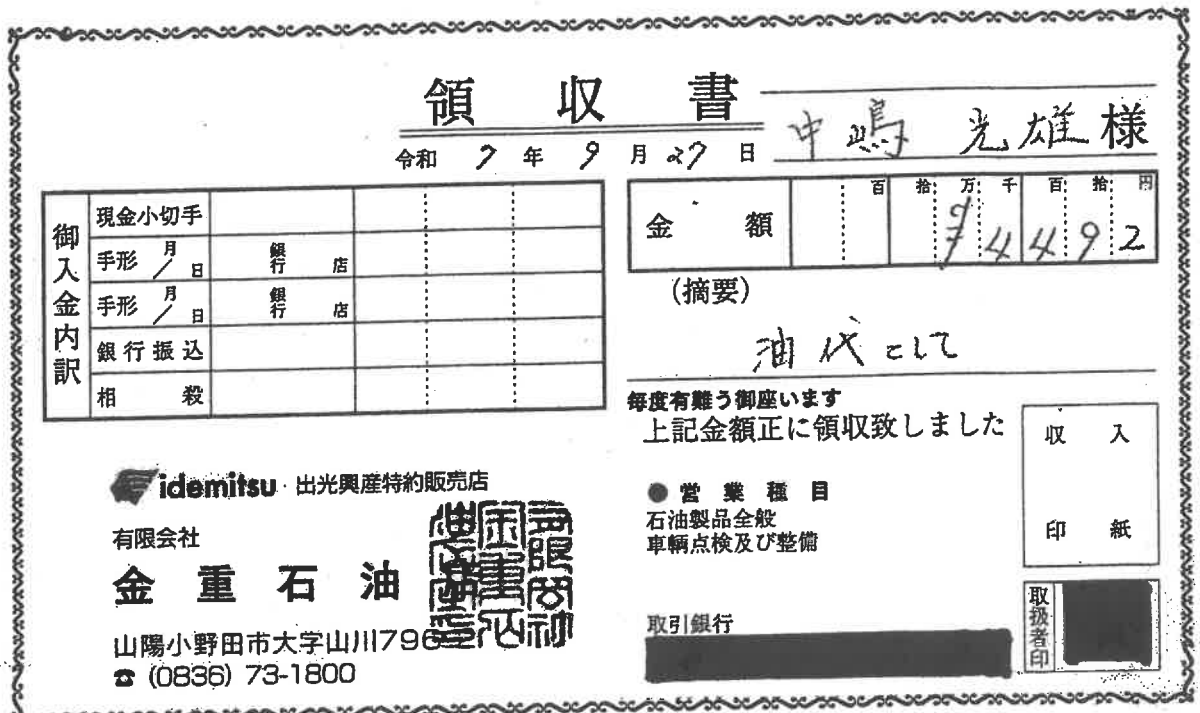 領収書
中嶋 光雄 様
令和 7 年 9 月 27 日
御入金内訳
現金小切手
手形 月/日 銀行 店
手形 月/日 銀行 店
銀行振込
相殺
金額 百 拾 万 千 百 拾 円
¥4492
(摘要)
油代として
毎度有難う御座います
上記金額正に領収致しました
収入印紙
idemitsu 出光興産特約販売店
有限会社
金重石油
山陽小野田市大字山川796
☎ (0836) 73-1800
● 営業種目
石油製品全般
車輌点検及び整備
取引銀行
取扱者印